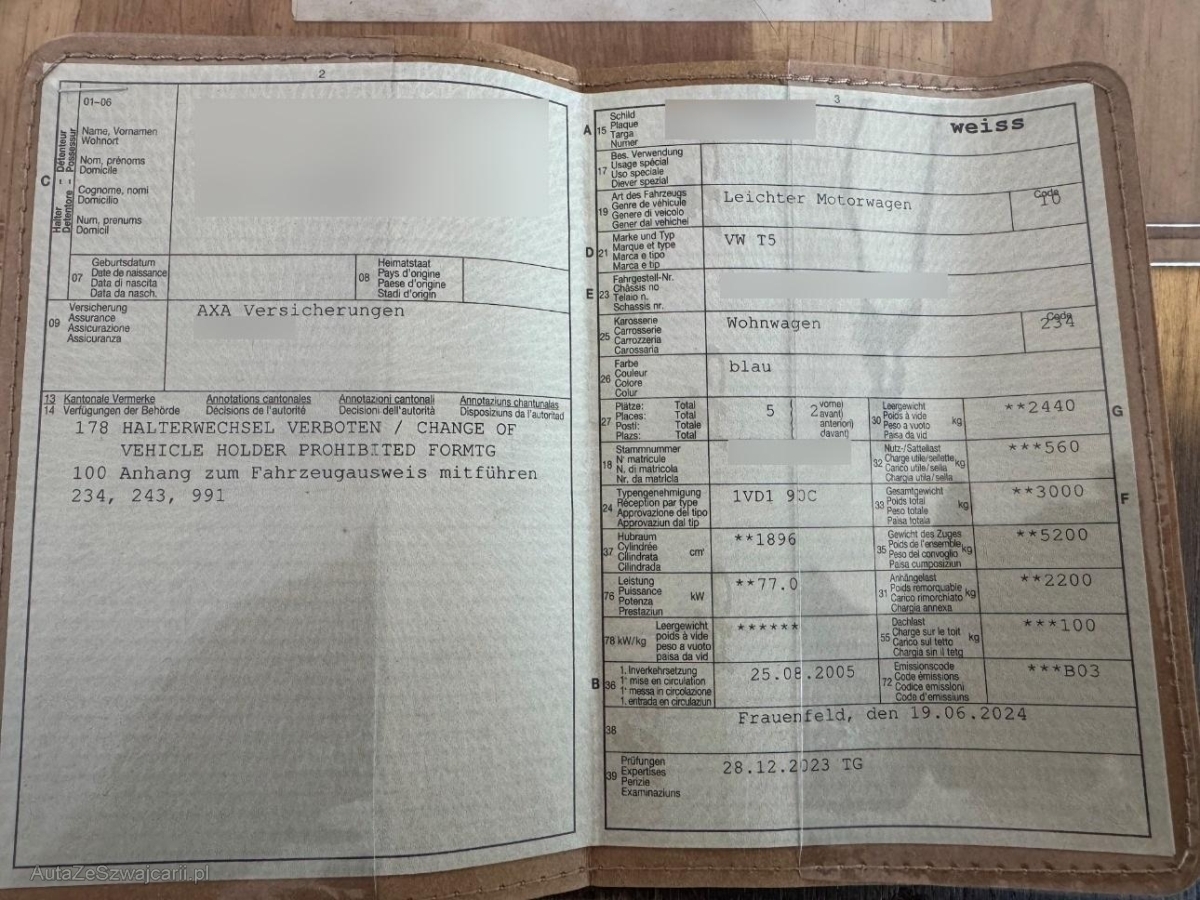 2
01-06
Halter
Détenteur
Detentore
Possessur
C
Name, Vornamen
Wohnort
Nom, prénoms
Domicile
Cognome, nomi
Domicilio
Num, prenums
Domicil
07
Geburtsdatum
Date de naissance
Data di nascita
Data da nasch.
08
Heimatstaat
Pays d'origine
Paese d'origine
Stadi d'origin
09
Versicherung
Assurance
Assicurazione
Assicuranza
AXA Versicherungen
13 Kantonale Vermerke Annotations cantonales Annotazioni cantonali Annotaziuns chantunalas
14 Verfügungen der Behörde Décisions de l'autorité Decisioni dell'autorità Disposiziuns da l'autoritad
178 HALTERWECHSEL VERBOTEN / CHANGE OF
VEHICLE HOLDER PROHIBITED FORMTG
100 Anhang zum Fahrzeugausweis mitführen
234, 243, 991
3
A 15
Schild
Plaque
Targa
Numer
weiss
17
Bes. Verwendung
Usage spécial
Uso speciale
Diever spezial
19
Art des Fahrzeugs
Genre de véhicule
Genere di veicolo
Gener dal vehichel
Leichter Motorwagen
Code
10
D 21
Marke und Typ
Marque et type
Marca e tipo
Marca e tip
VW T5
E 23
Fahrgestell-Nr.
Châssis no
Telaio n.
Schassis nr.
25
Karosserie
Carrosserie
Carrozzeria
Carossaria
Wohnwagen
Code
234
26
Farbe
Couleur
Colore
Colur
blau
27
Plätze: Total
Places: Total
Posti: Totale
Plazs: Total
5
2
vorne)
avant)
anteriori)
davant)
30
Leergewicht
Poids à vide
Peso a vuoto
Paisa da vid
kg
**2440
G
18
Stammnummer
N° matricule
N. di matricola
Nr. da matricla
32
Nutz-/Sattellast
Charge utile/sellette
Carico utile/sella
Chargia utila/sella
kg
***560
24
Typengenehmigung
Réception par type
Approvazione del tipo
Approvaziun dal tip
1VD1 90C
33
Gesamtgewicht
Poids total
Peso totale
Paisa totala
kg
**3000
F
37
Hubraum
Cylindrée
Cilindrata
Cilindrada
cm³
**1896
35
Gewicht des Zuges
Poids de l'ensemble
Peso del convoglio
Paisa cumposiziun
kg
**5200
76
Leistung
Puissance
Potenza
Prestaziun
kW
**77.0
31
Anhängelast
Poids remorquable
Carico rimorchiato
Chargia annexa
kg
**2200
78 kW/kg
Leergewicht
poids à vide
peso a vuoto
paisa da vid
******
55
Dachlast
Charge sur le toit
Carico sul tetto
Chargia sin il tetg
kg
***100
B 36
1. Inverkehrsetzung
1re mise en circulation
1a messa in circolazione
1. entrada en circulaziun
25.08.2005
72
Emissionscode
Code émissions
Codice emissioni
Code d'emissiuns
***B03
38
Frauenfeld, den 19.06.2024
39
Prüfungen
Expertises
Perizie
Examinaziuns
28.12.2023 TG
AutaZeSzwajcarii.pl